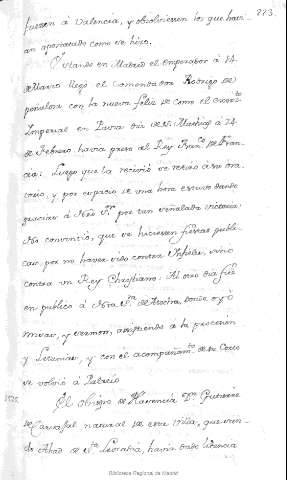 223.
fuessen á Valencia, y absolviessen los que havi-
an apostatado como se hizo.
Estando en Madrid el emperador á 14.
de Marzo llegó el Comendador Rodrigo de
peñalosa con la nueva feliz de como el exercito
Imperial en Pavia dia de Sn. Mathias á 24
de Febrero havia preso al Rey Franco. de Fran
cia; Luego que la recivio se retiro á su ora
torio, y por espacio de una hora estuvo dando
gracias á Nro Sr. por tan señalada victoria:
No consintió, que se hiciessen fiestas publi-
cas, por no haver sido contra Infieles, sino
contra un Rey Christiano: Al otro dia fue
en publico á Nra Sra. de Atocha, donde oyó
missa, y sermon, assistiendo á la procesion
y Letanias, y con el acompañamto. de su Corte
se volvió á Palacio
1525. El obispo de Plasencia Dn. Gutierre
de Carvajal natural de esta Villa, que sien-
do Abad de Sta. Leocadia, havia dado licencia
Biblioteca Regional de Madrid